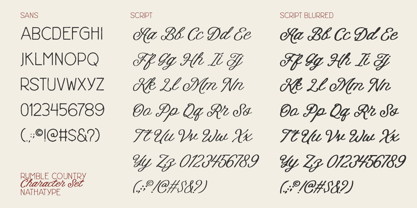 SANS
ABCDEFGHI
JKLMNOPQ
RSTUVWXYZ
0123456789
(.,:;©!@#$&?)
RUMBLE COUNTRY
Character Set
NATHATYPE
SCRIPT
Aa Bb Cc Dd Ee
Ff Gg Hh Ii Jj
Kk Ll Mm Nn
Oo Pp Qq Rr Ss
Tt Uu Vv Ww Xx
Yy Zz 0123456789
(.,:;©!@#$&?)
SCRIPT BLURRED
Aa Bb Cc Dd Ee
Ff Gg Hh Ii Jj
Kk Ll Mm Nn
Oo Pp Qq Rr Ss
Tt Uu Vv Ww Xx
Yy Zz 0123456789
(.,:;©!@#$&?)